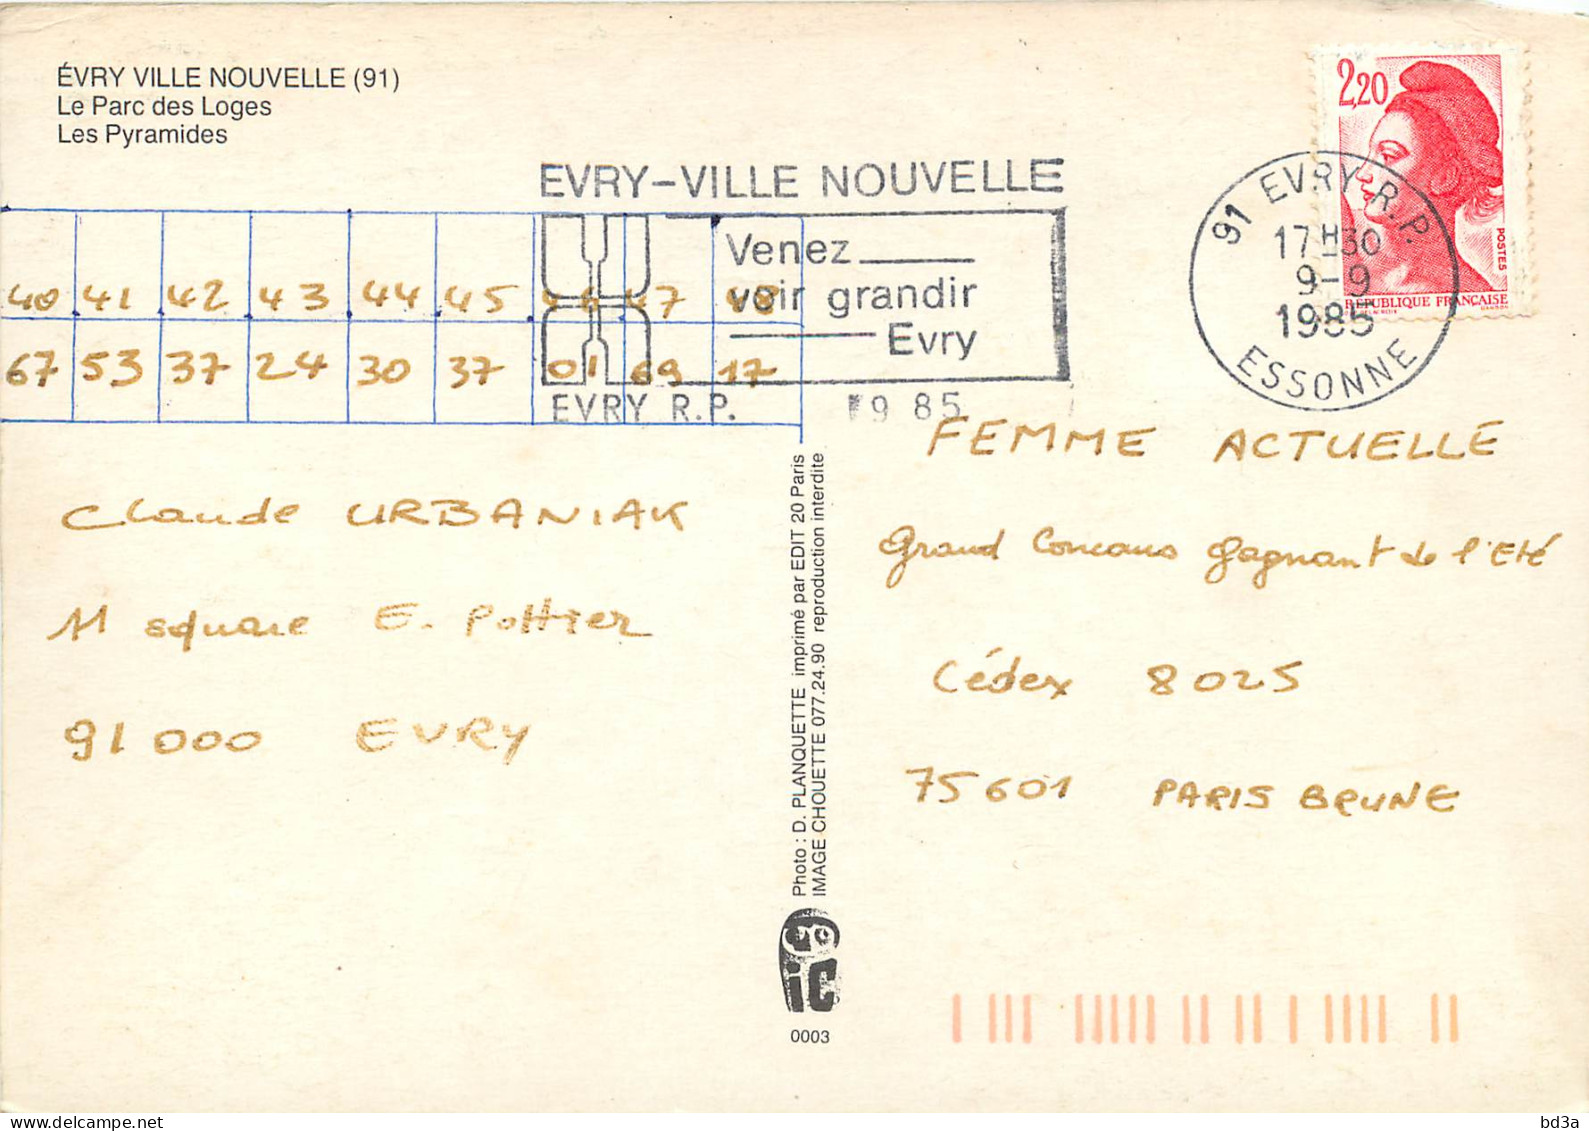 ÉVRY VILLE NOUVELLE (91)
Le Parc des Loges
Les Pyramides
2,20
POSTES
REPUBLIQUE FRANÇAISE
91 EVRY R.P.
17H30
9-9
1985
ESSONNE
EVRY-VILLE NOUVELLE
Venez
voir grandir
Evry
EVRY R.P.
9 85
40 41 42 43 44 45 46 47 48
67 53 37 24 30 37 01 69 17
Claude URBANIAK
11 square E. Pottier
91000 EVRY
FEMME ACTUELLE
Grand Concours gagnant de l'Eté
Cédex 8025
75601 PARIS BRUNE
Photo : D. PLANQUETTE imprimé par EDIT 20 Paris
IMAGE CHOUETTE 077.24.90 reproduction interdite
iC
0003
bd3a